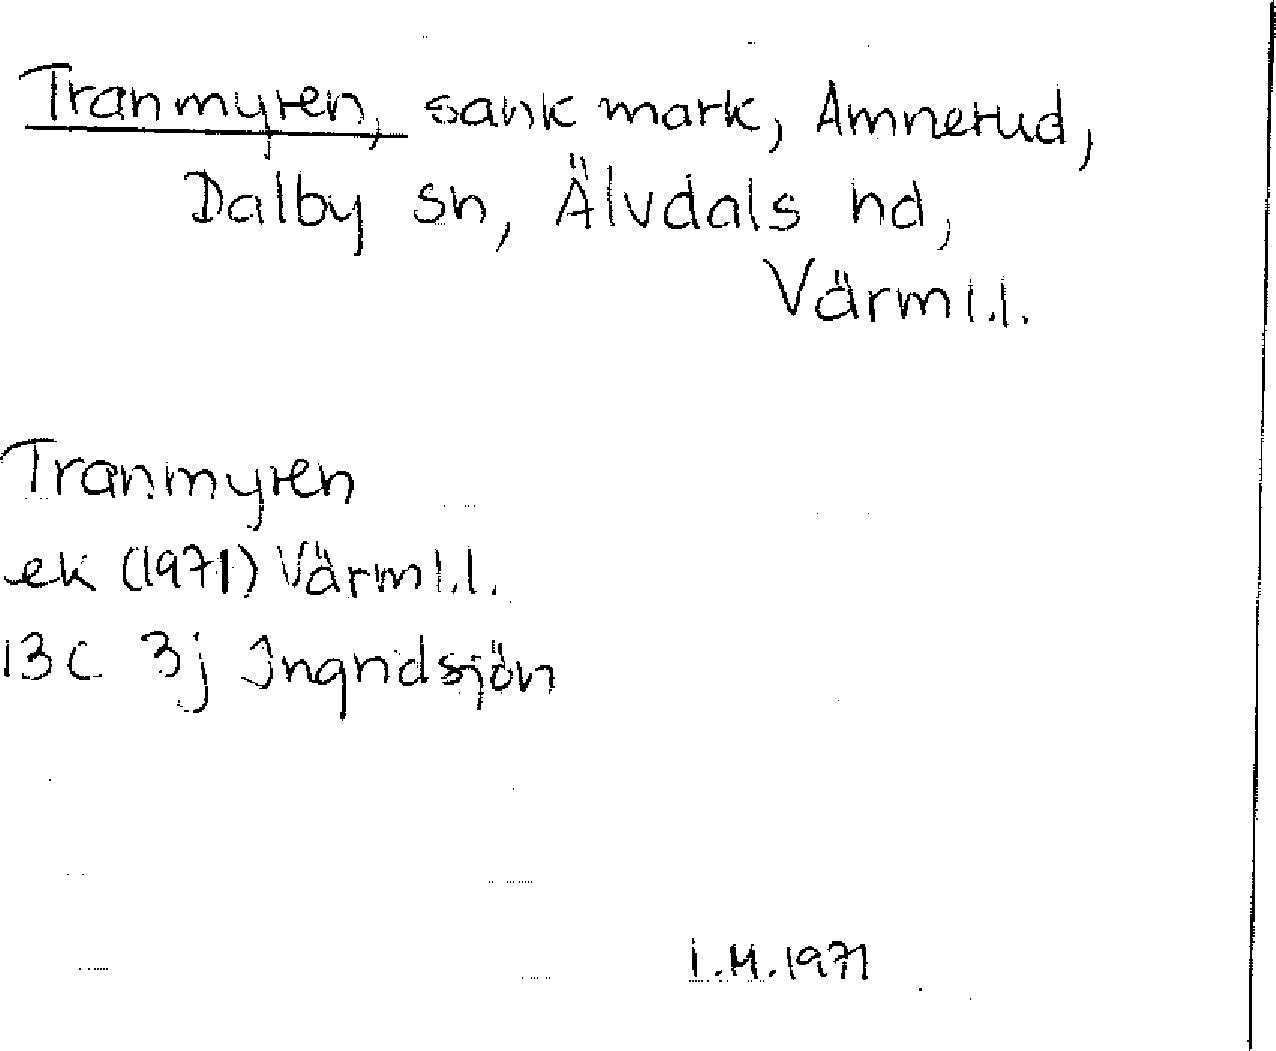 Tranmyren, sank mark, Amnerud,
Dalby sn, Älvdals hd,
Värml.l.
Tranmyren
ek (1971) Värml.l.
13C 3j Ingridsjön
I.M.1971